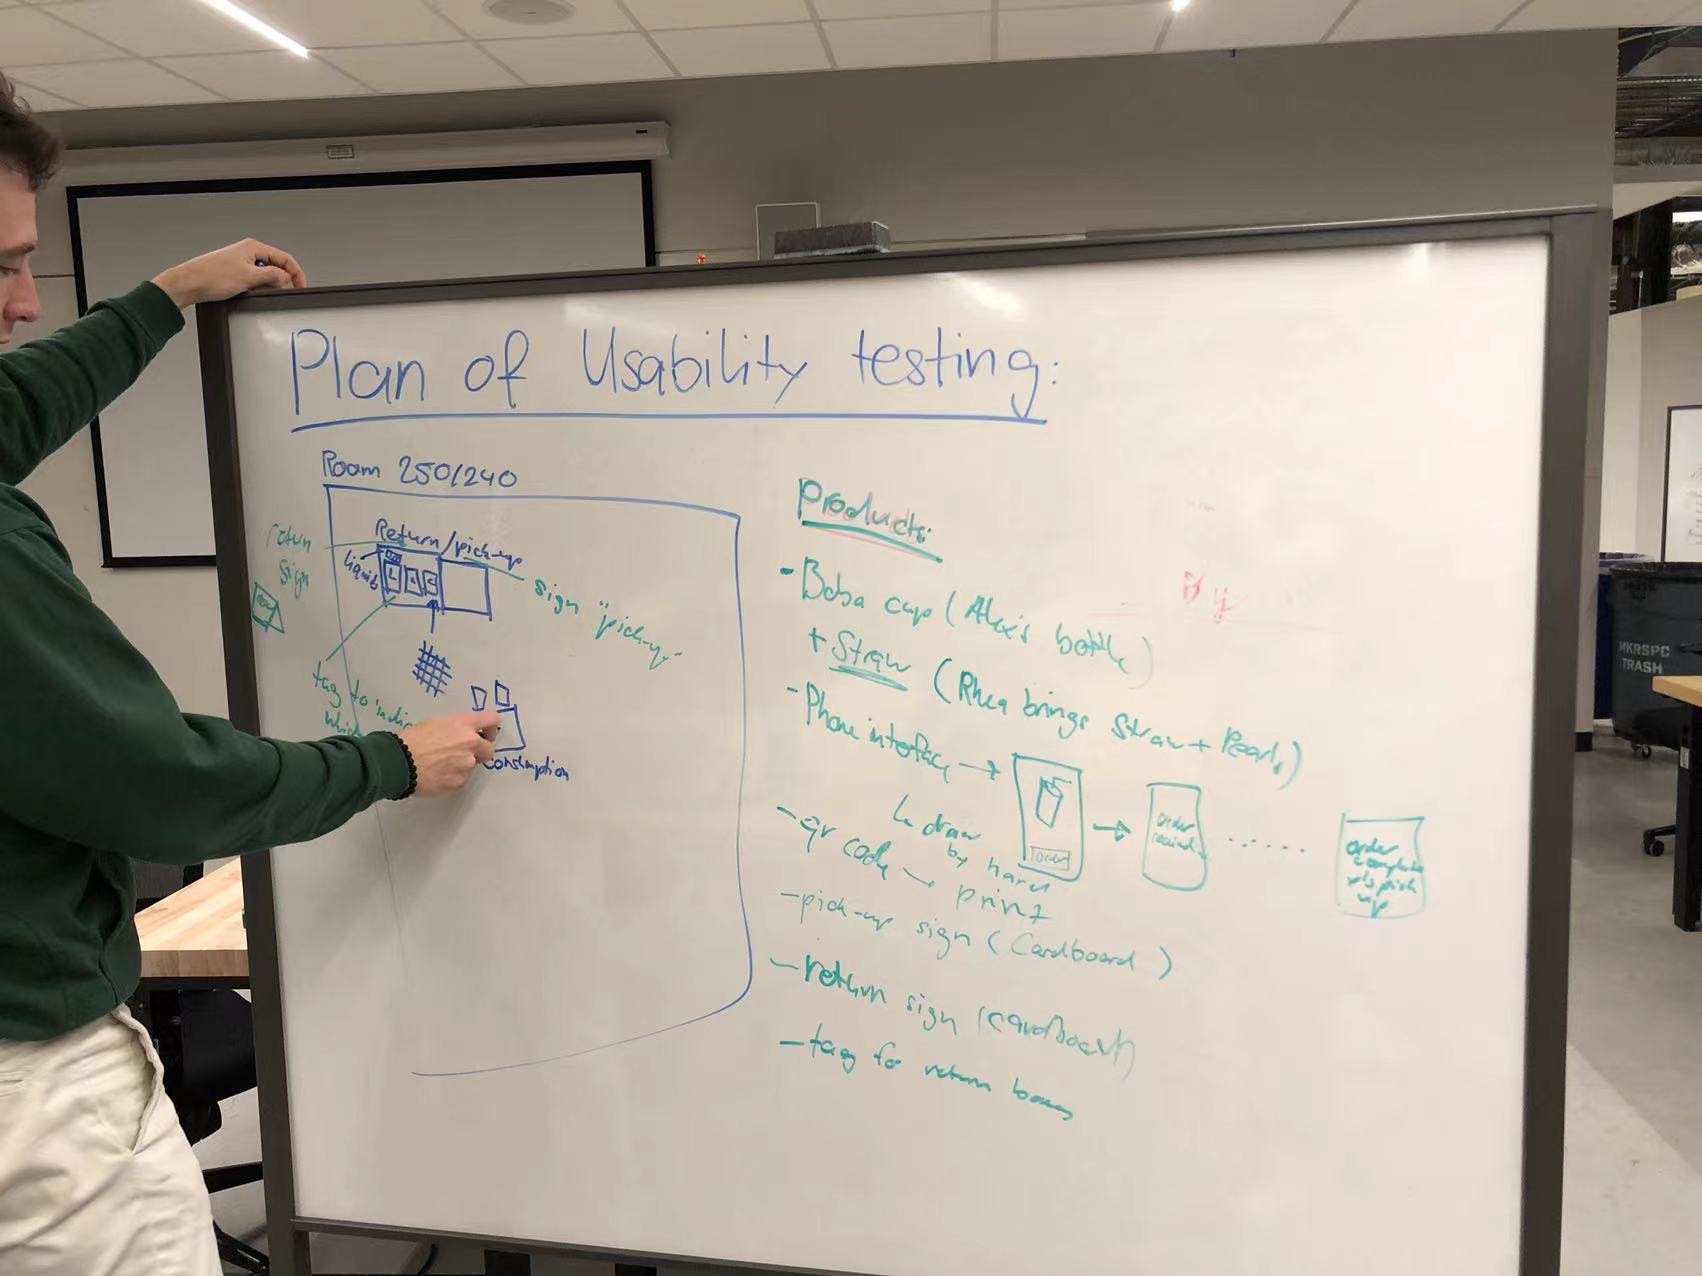 Plan of Usability testing:
Room 250/240
return
sign
Return/pick-up
liquids
L
sign "pick-up"
tag to indic
whic
consumption
Products:
- Boba cup (Alex's bottle)
+ Straw (Rhea brings Straw + Pearls)
- Phone interface →
↳ draw
by hand
order
→
order
......
order
complete
pls pick
up
- qr code → print
- pick-up sign (Cardboard)
- return sign (cardboard)
- tag for return boxes
MKRSPC
TRASH